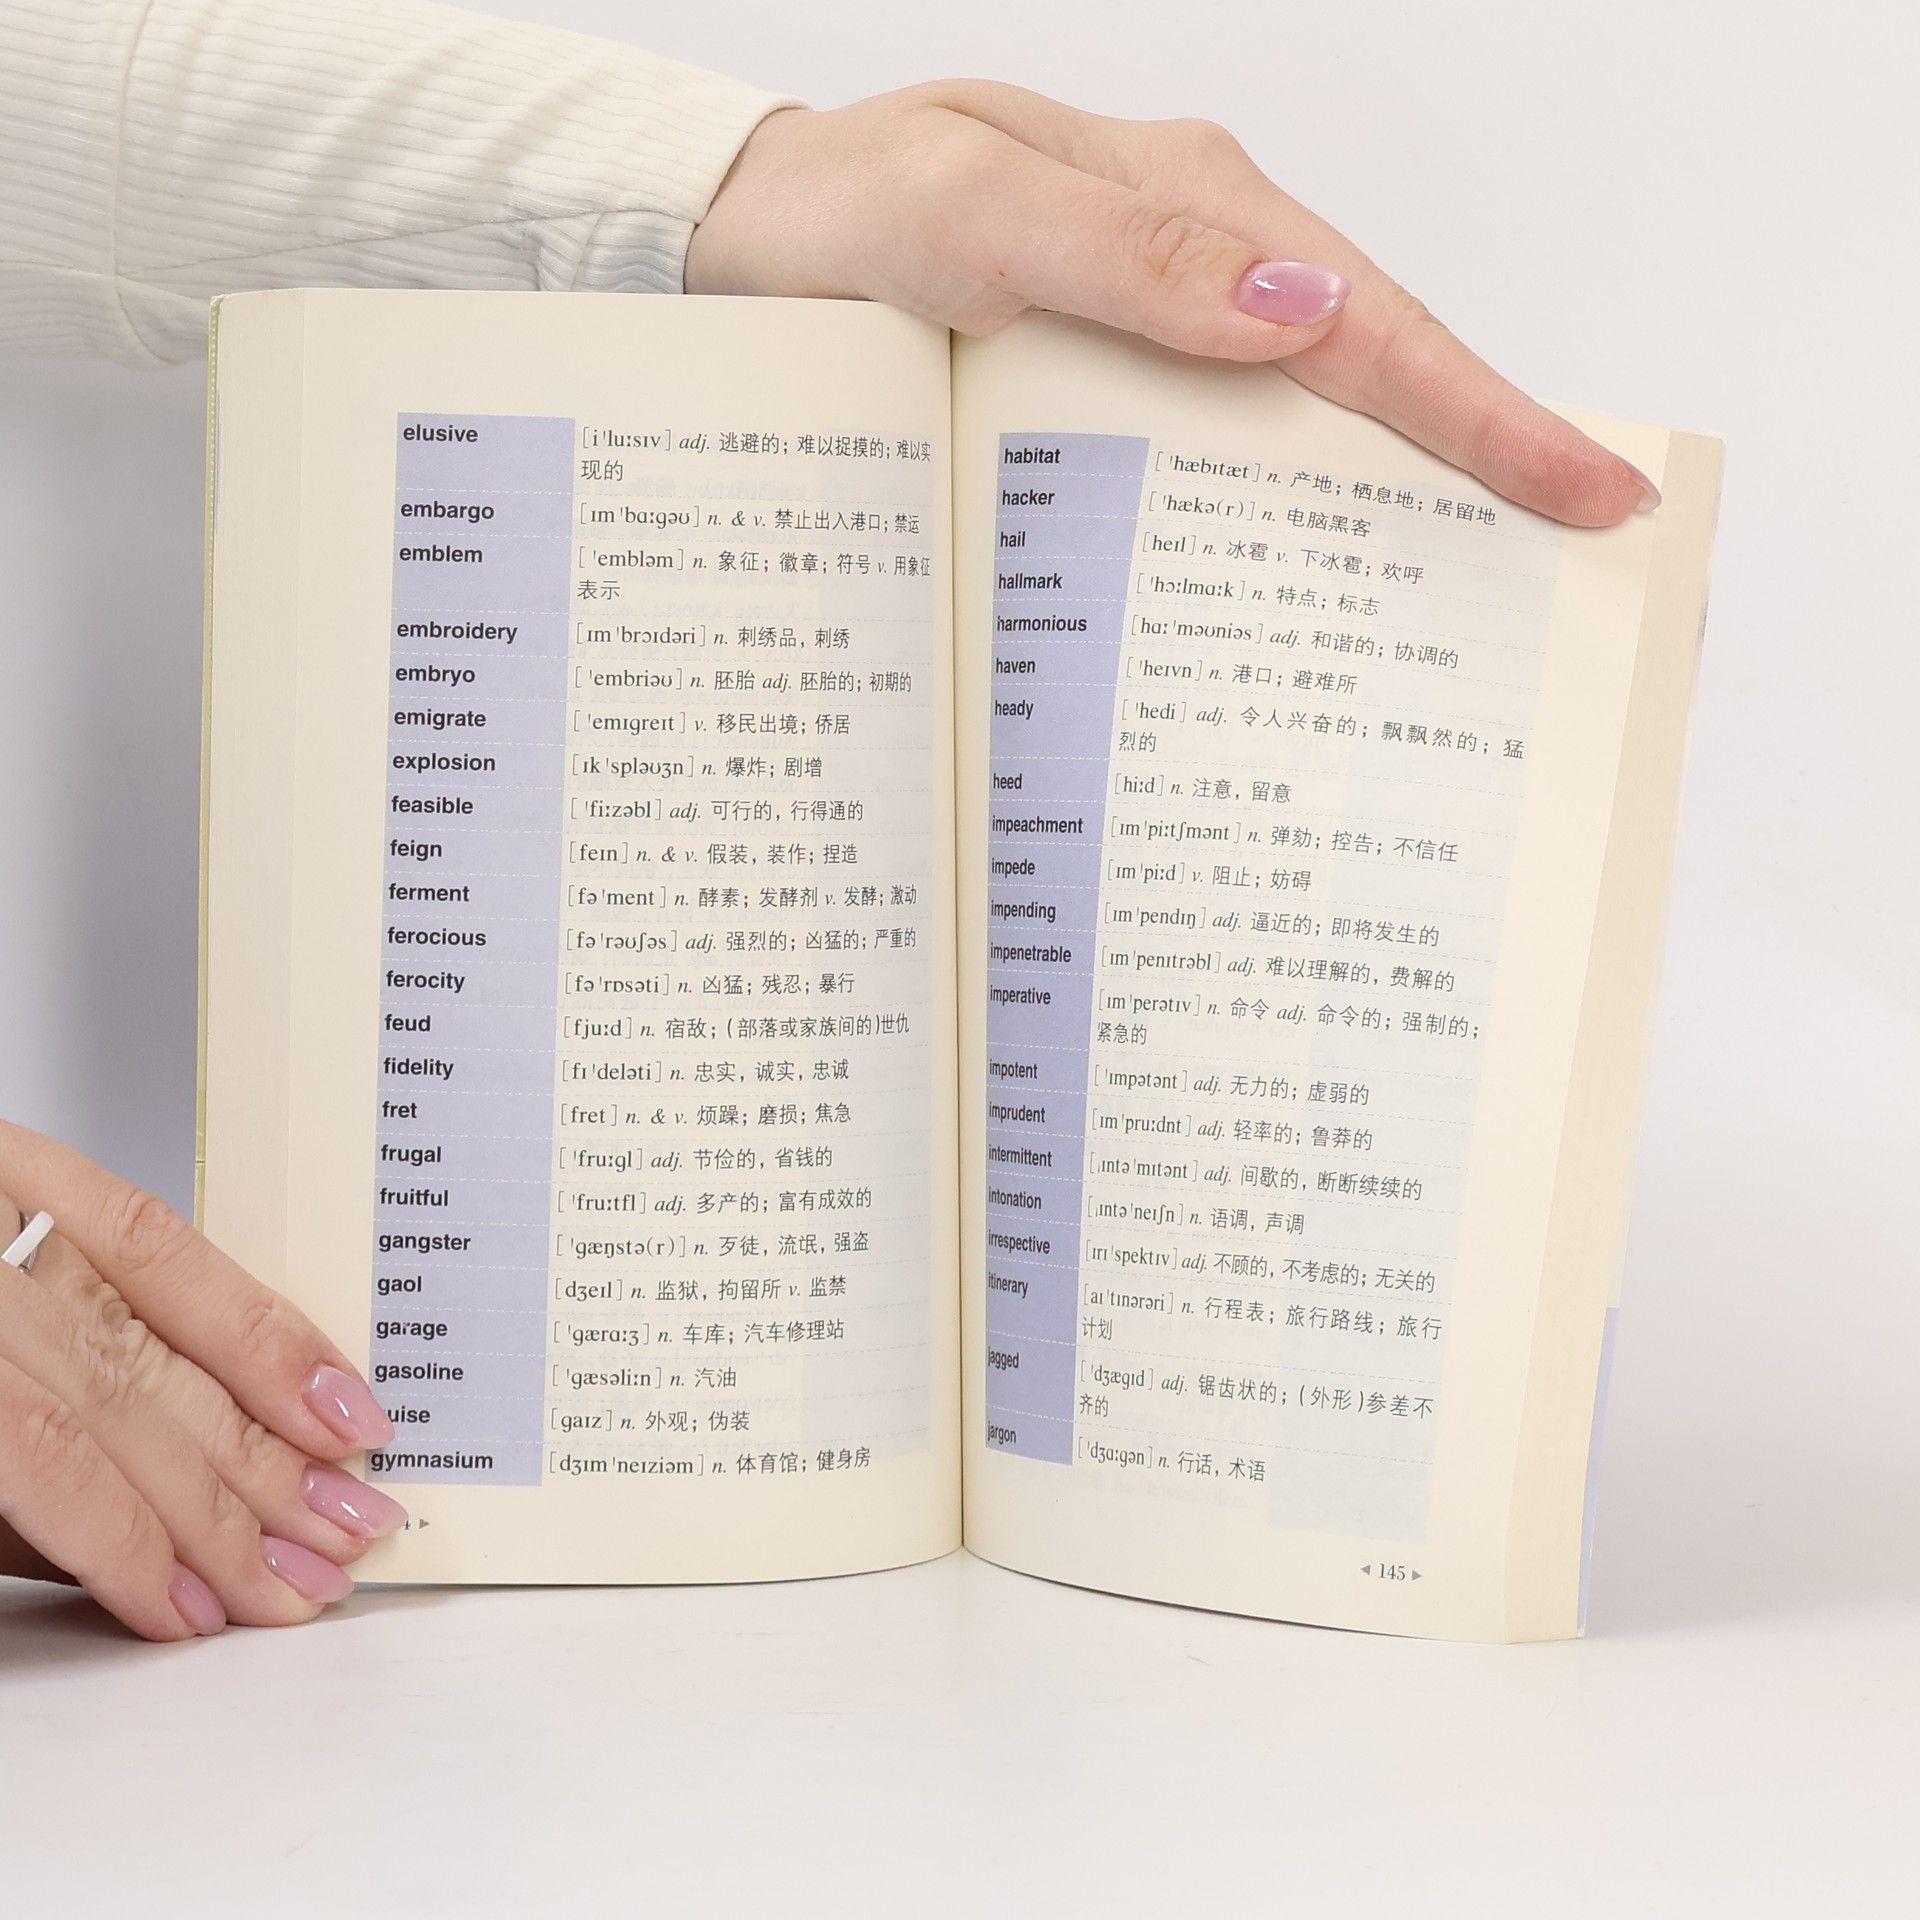 elusive [i'luːsɪv] adj. 逃避的；难以捉摸的；难以实
现的
embargo [ɪm'bɑːɡəʊ] n. & v. 禁止出入港口；禁运
emblem ['embləm] n. 象征；徽章；符号 v. 用象征
表示
embroidery [ɪm'brɔɪdəri] n. 刺绣品，刺绣
embryo ['embriəʊ] n. 胚胎 adj. 胚胎的；初期的
emigrate ['emɪɡreɪt] v. 移民出境；侨居
explosion [ɪk'spləʊʒn] n. 爆炸；剧增
feasible ['fiːzəbl] adj. 可行的，行得通的
feign [feɪn] n. & v. 假装，装作；捏造
ferment [fə'ment] n. 酵素；发酵剂 v. 发酵；激动
ferocious [fə'rəʊʃəs] adj. 强烈的；凶猛的；严重的
ferocity [fə'rɒsəti] n. 凶猛；残忍；暴行
feud [fjuːd] n. 宿敌；(部落或家族间的)世仇
fidelity [fɪ'deləti] n. 忠实，诚实，忠诚
fret [fret] n. & v. 烦躁；磨损；焦急
frugal ['fruːɡl] adj. 节俭的，省钱的
fruitful ['fruːtfl] adj. 多产的；富有成效的
gangster ['ɡæŋstə(r)] n. 歹徒，流氓，强盗
gaol [dʒeɪl] n. 监狱，拘留所 v. 监禁
garage ['ɡærɑːʒ] n. 车库；汽车修理站
gasoline ['ɡæsəliːn] n. 汽油
uise [ɡaɪz] n. 外观；伪装
gymnasium [dʒɪm'neɪziəm] n. 体育馆；健身房
4 ▶
habitat ['hæbɪtæt] n. 产地；栖息地；居留地
hacker ['hækə(r)] n. 电脑黑客
hail [heɪl] n. 冰雹 v. 下冰雹；欢呼
hallmark ['hɔːlmɑːk] n. 特点；标志
harmonious [hɑː'məʊniəs] adj. 和谐的；协调的
haven ['heɪvn] n. 港口；避难所
heady ['hedi] adj. 令人兴奋的；飘飘然的；猛
烈的
heed [hiːd] n. 注意，留意
impeachment [ɪm'piːtʃmənt] n. 弹劾；控告；不信任
impede [ɪm'piːd] v. 阻止；妨碍
impending [ɪm'pendɪŋ] adj. 逼近的；即将发生的
impenetrable [ɪm'penɪtrəbl] adj. 难以理解的，费解的
imperative [ɪm'perətɪv] n. 命令 adj. 命令的；强制的；
紧急的
impotent ['ɪmpətənt] adj. 无力的；虚弱的
imprudent [ɪm'pruːdnt] adj. 轻率的；鲁莽的
intermittent [ˌɪntə'mɪtənt] adj. 间歇的，断断续续的
intonation [ˌɪntə'neɪʃn] n. 语调，声调
irrespective [ɪrɪ'spektɪv] adj. 不顾的，不考虑的；无关的
itinerary [aɪ'tɪnərəri] n. 行程表；旅行路线；旅行
计划
jagged ['dʒæɡɪd] adj. 锯齿状的；(外形)参差不
齐的
jargon ['dʒɑːɡən] n. 行话，术语
◀ 145 ▶